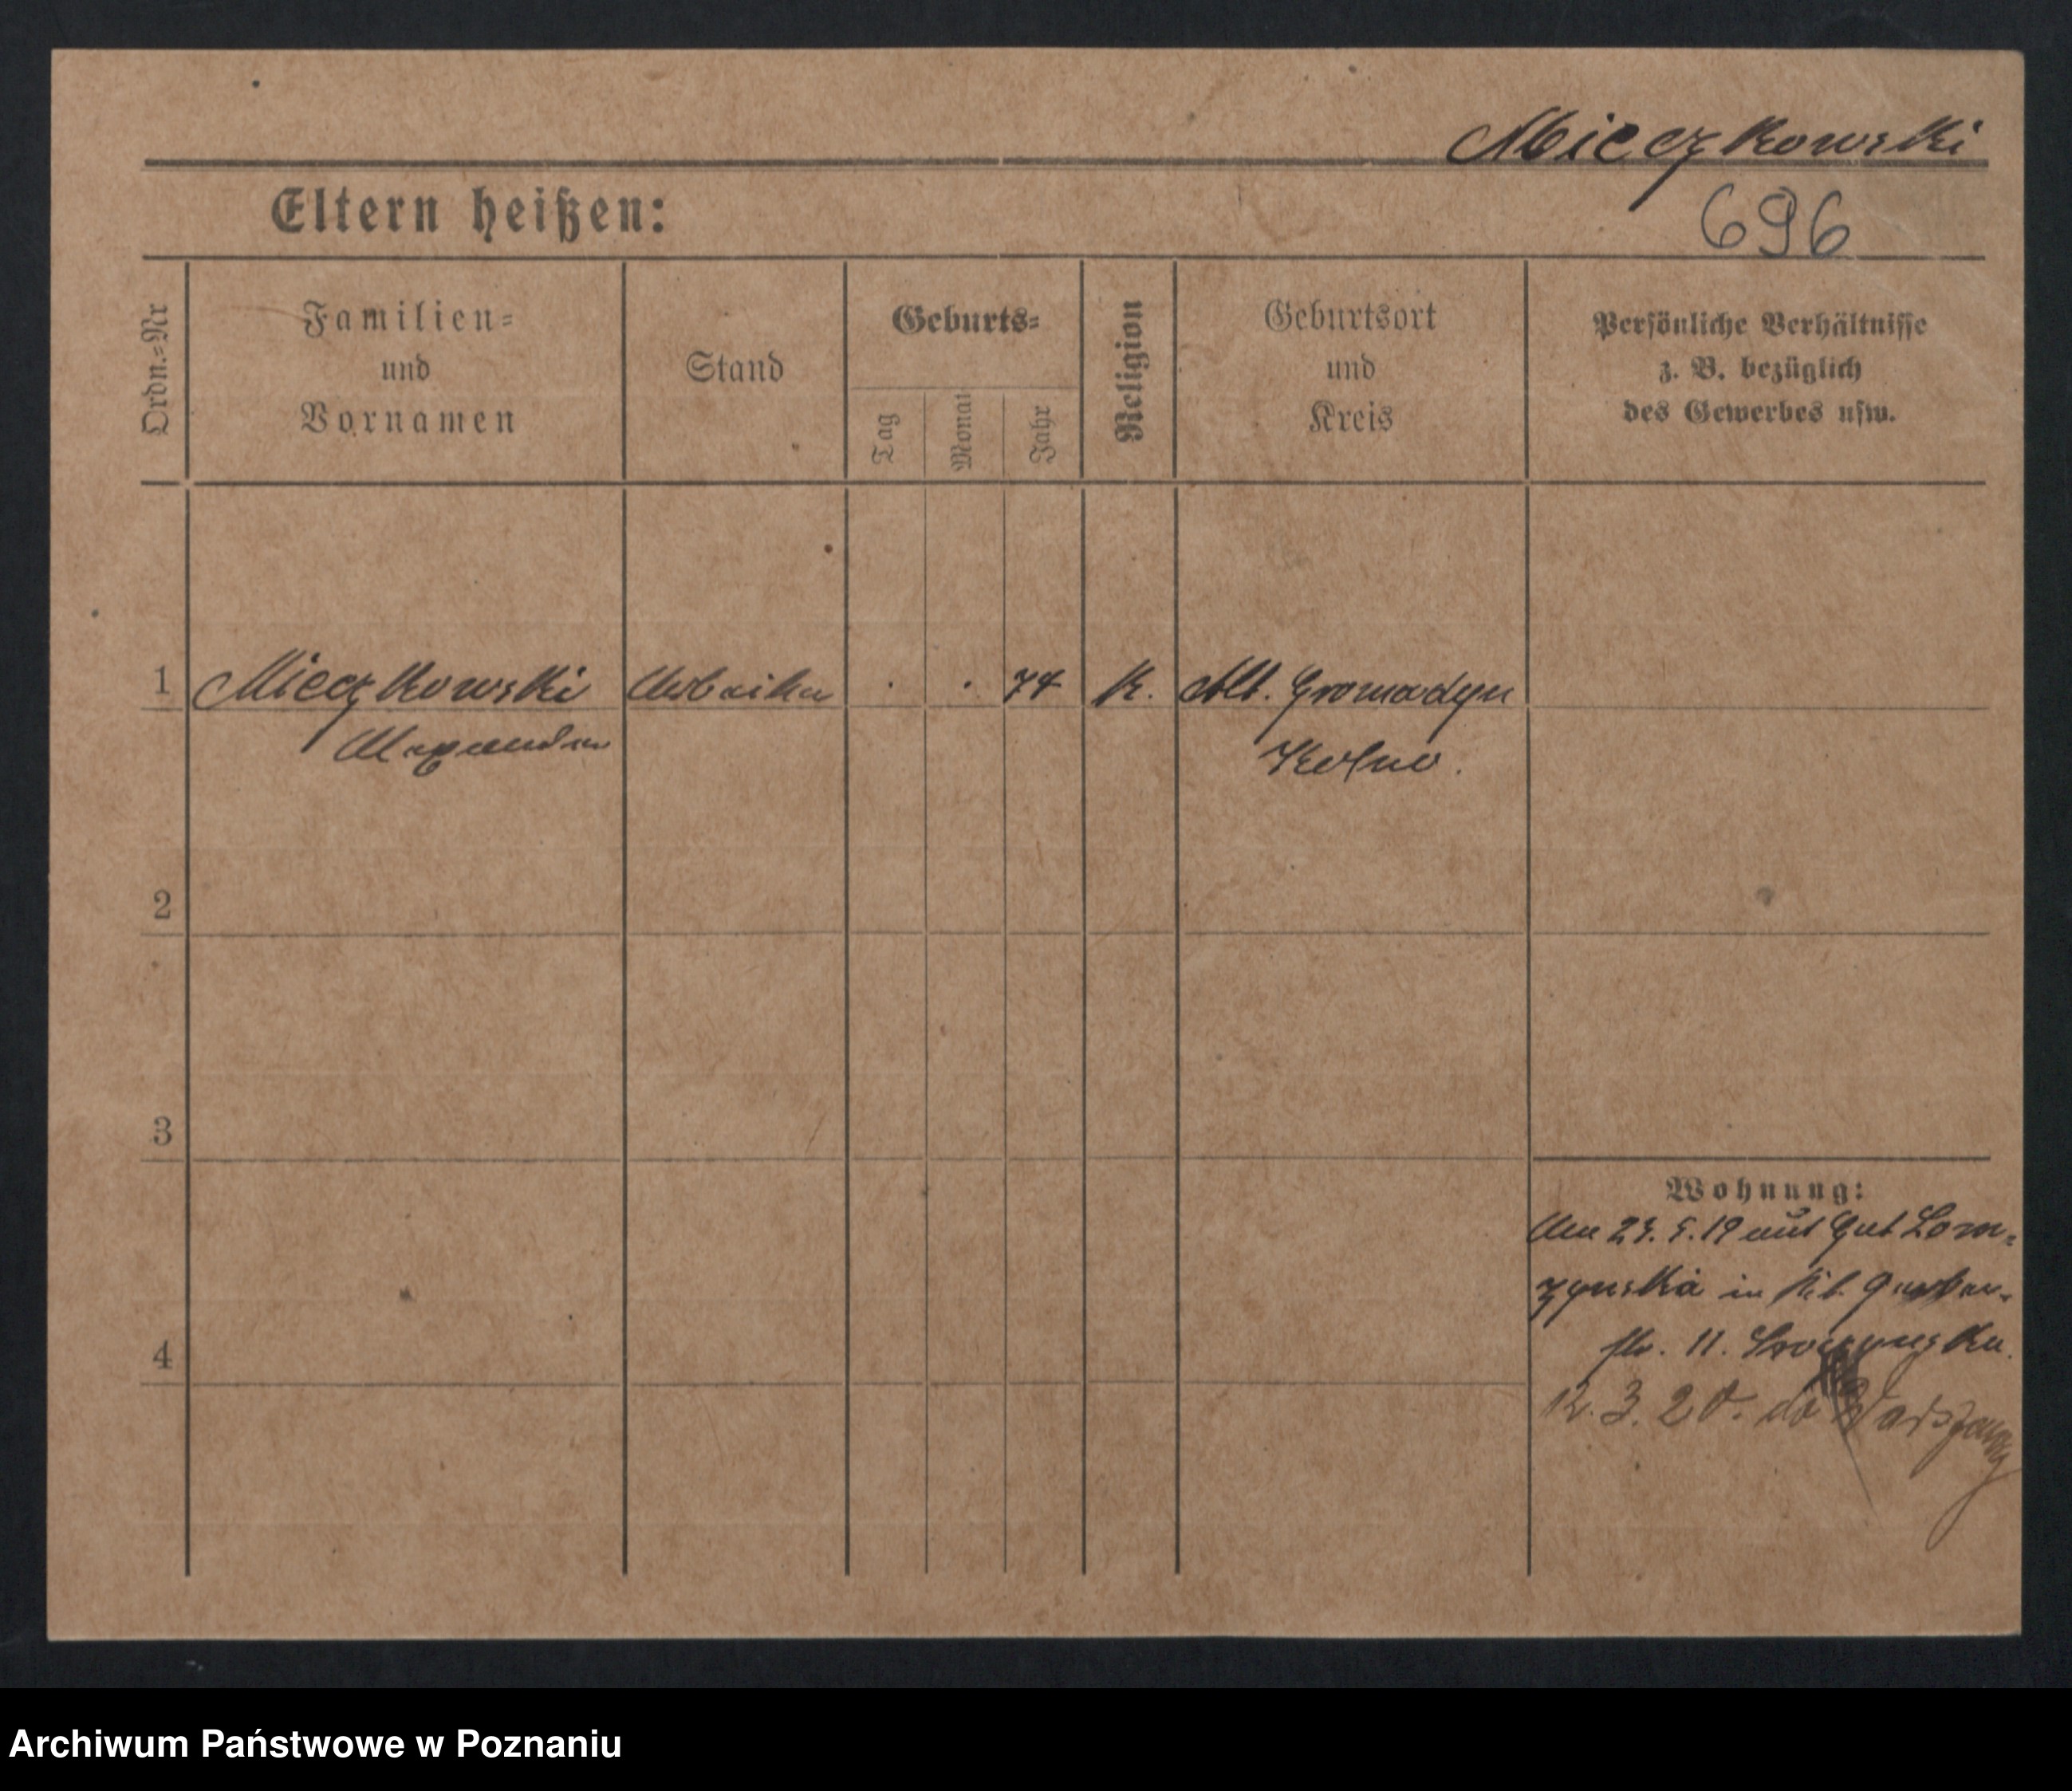 Mieczkowski
Eltern heißen:
696
Ordn.=Nr
Familien=
und
Vornamen
Stand
Geburts=
Tag
Monat
Jahr
Religion
Geburtsort
und
Kreis
Persönliche Verhältnisse
z. B. bezüglich
des Gewerbes usw.
1 Mieczkowski Arbeiter . . 74 K. Alt. Gromadzyn
Alexander Kolno.
2
3
4
Wohnung:
Am 23.5.19 aus Gut Lom=
zynska in
str. 11.
12. 3. 20. do Warszawy
Archiwum Państwowe w Poznaniu